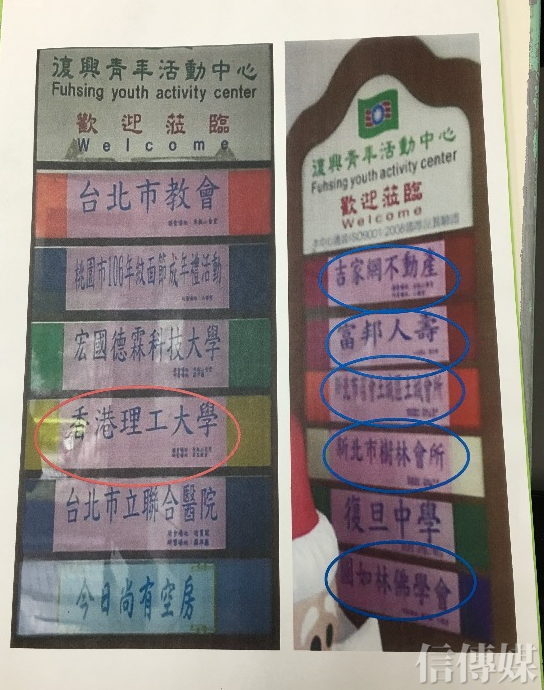 復興青年活動中心
Fuhsing youth activity center
歡迎蒞臨
Welcome
台北市教會
桃園市106年紋面節成年禮活動
宏國德霖科技大學
香港理工大學
台北市立聯合醫院
今日尚有空房
復興青年活動中心
Fuhsing youth activity center
歡迎蒞臨
Welcome
本中心通過ISO9001:2008國際品質驗證
吉家網不動產
富邦人壽
新北市召會土城區土城會所
新北市樹林會所
復旦中學
圓如林佛學會
信傳媒